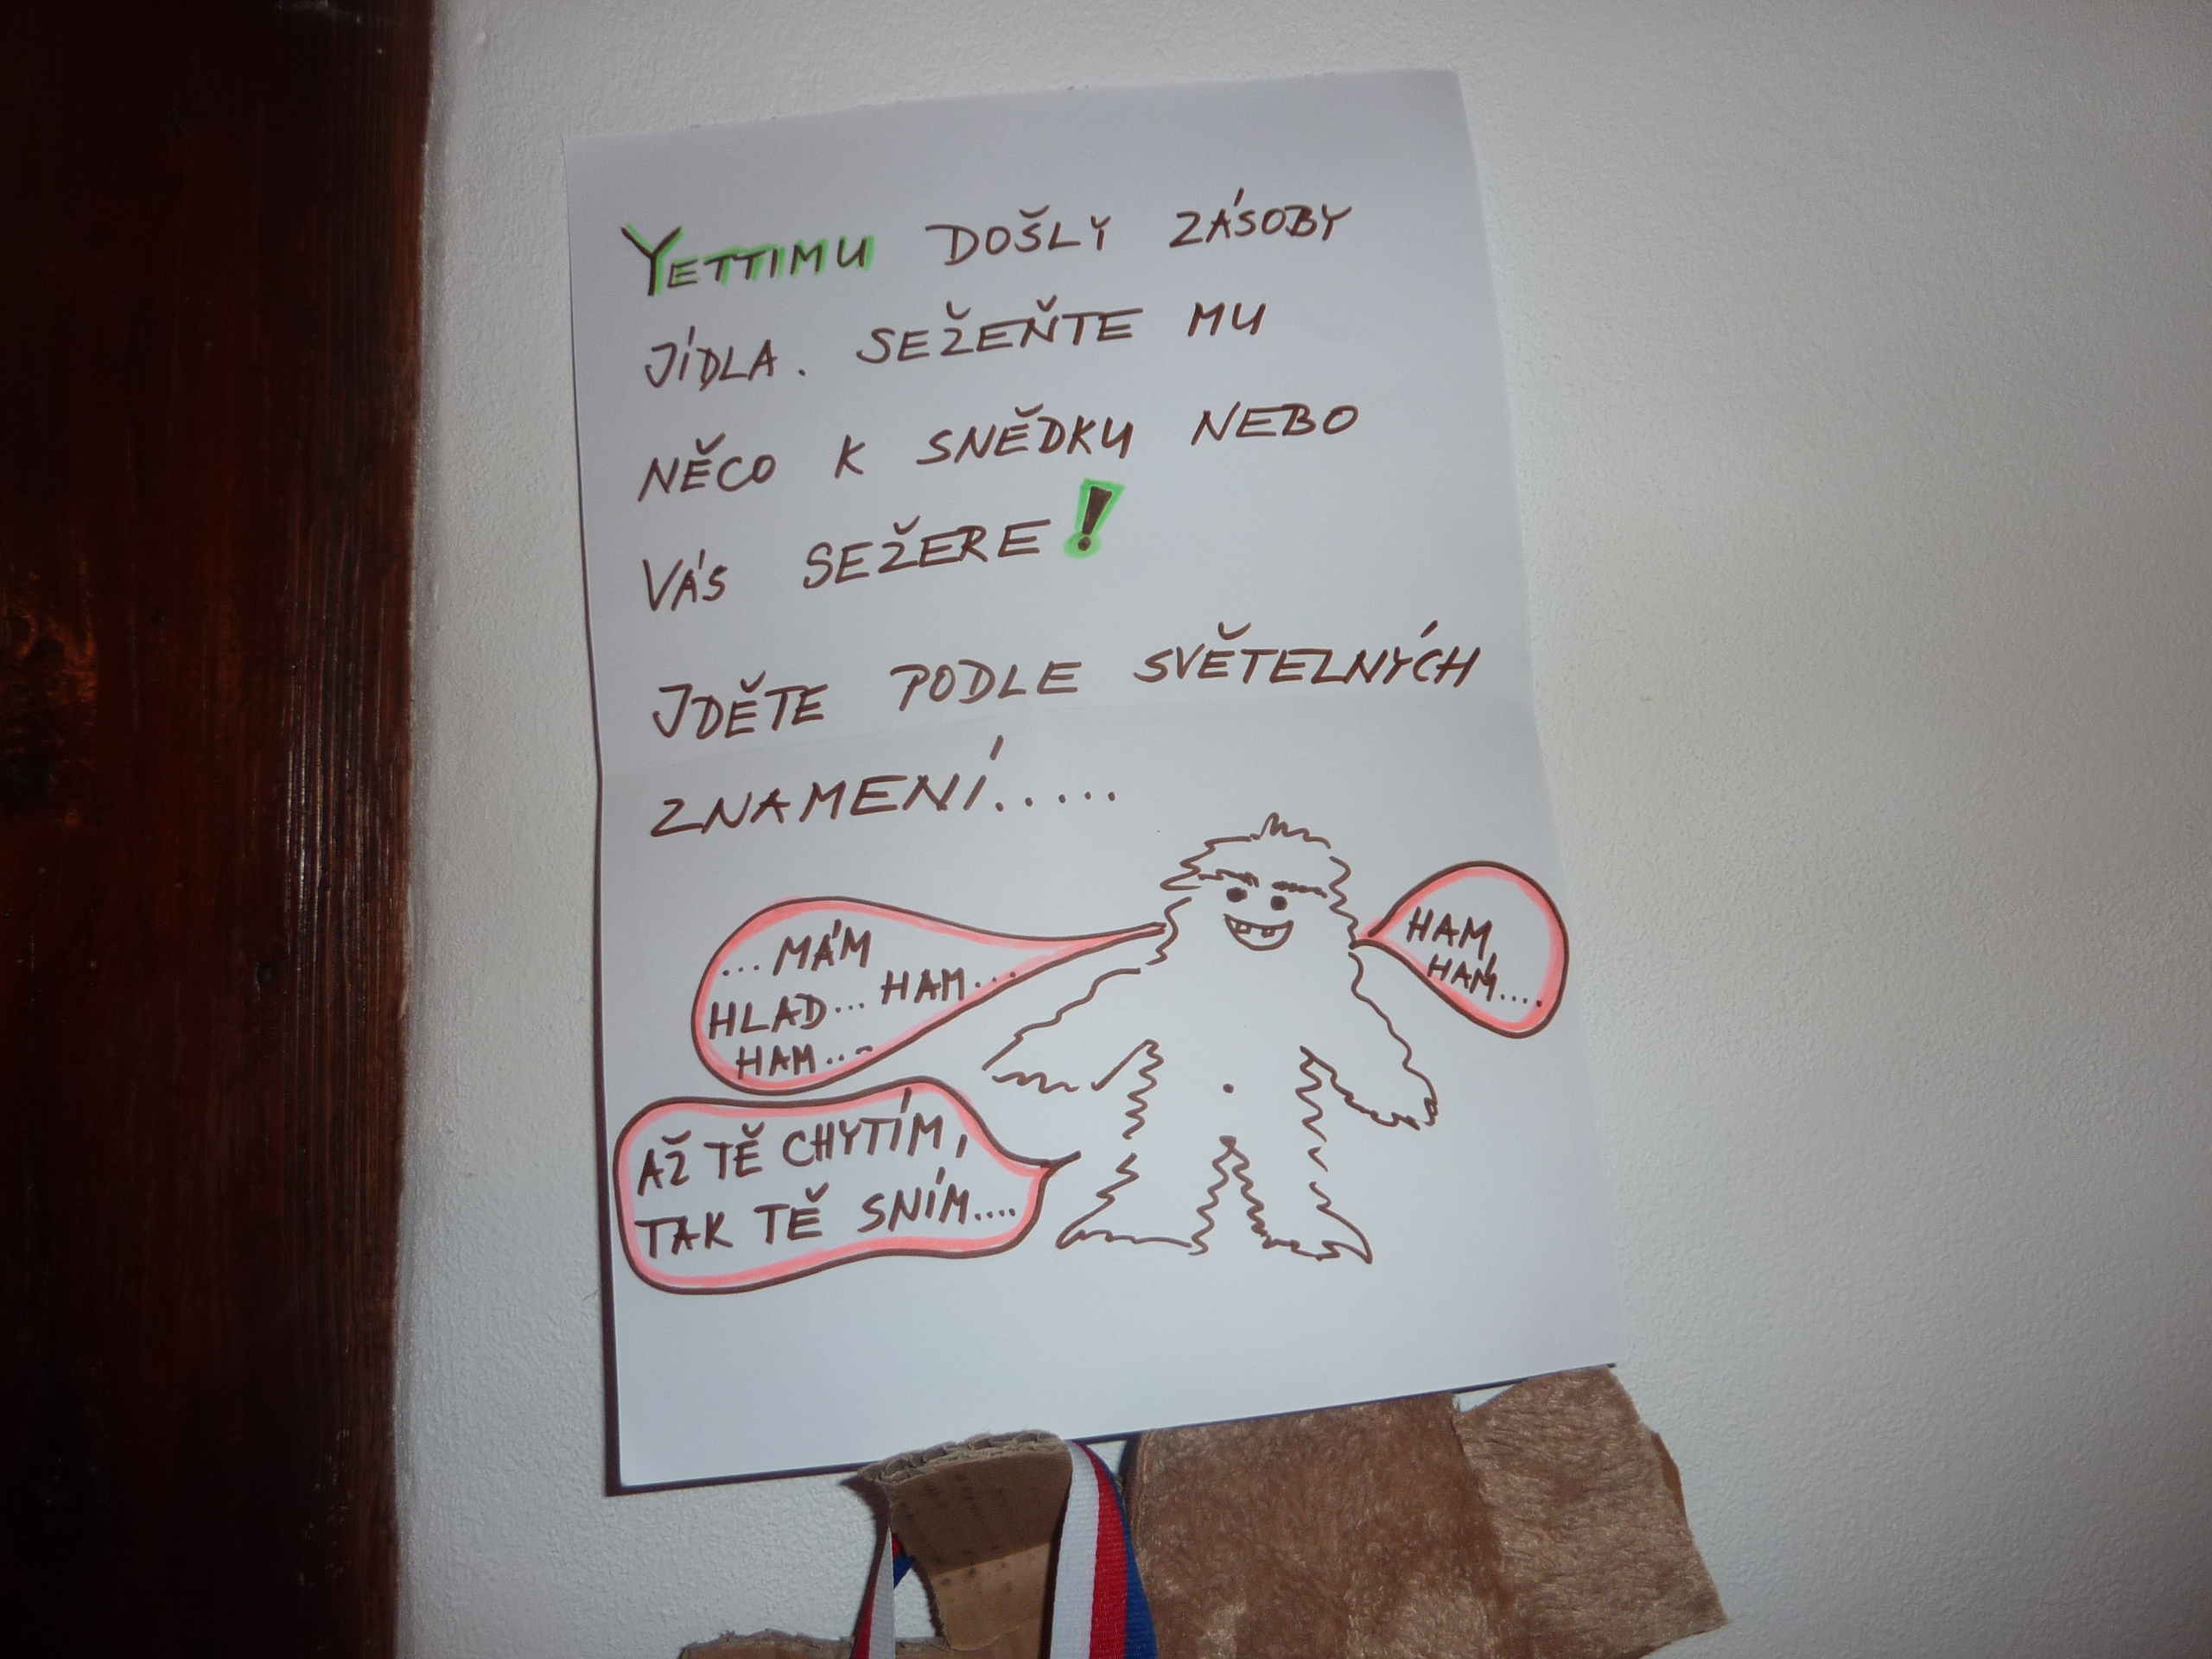 YETTIMU DOŠLY ZÁSOBY
JÍDLA. SEŽEŇTE MU
NĚCO K SNĚDKU NEBO
VÁS SEŽERE!
JDĚTE PODLE SVĚTELNÝCH
ZNAMENÍ.....
...MÁM
HLAD...HAM...
HAM....
HAM
HAM....
AŽ TĚ CHYTÍM,
TAK TĚ SNÍM....